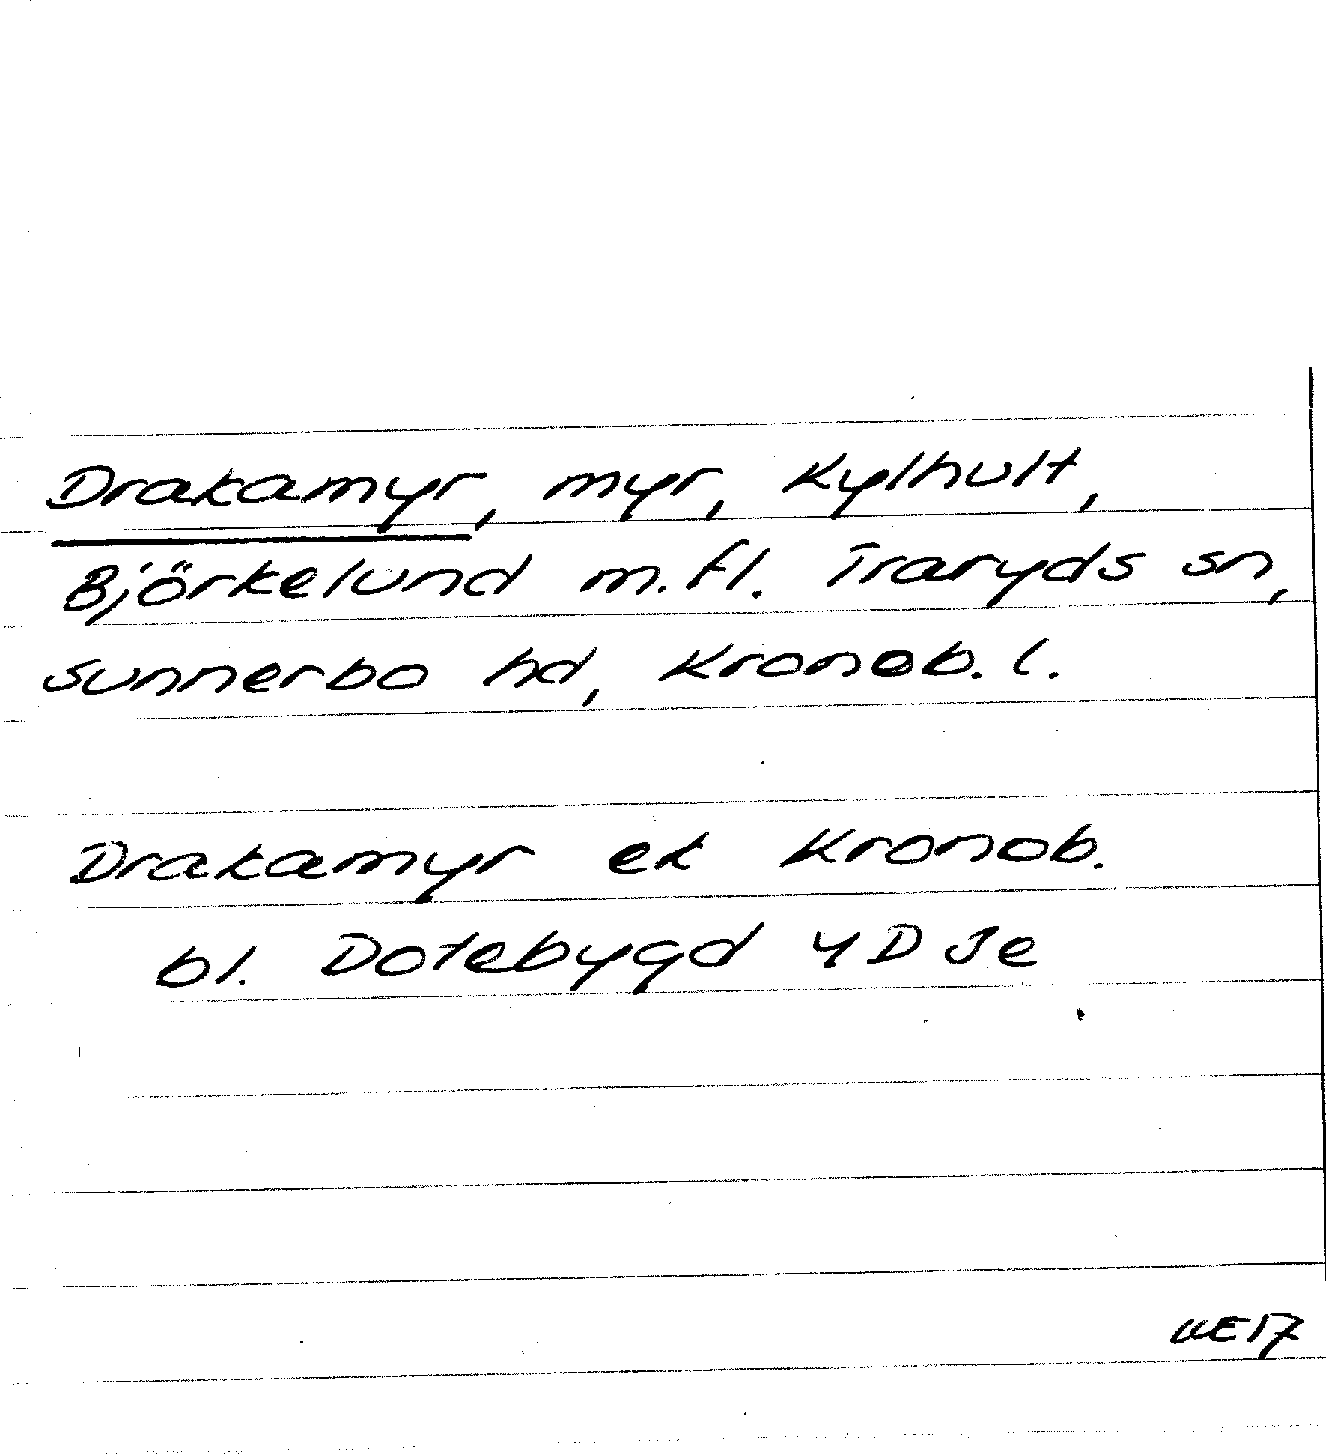 Drakamyr, myr, Kylhult,
Björkelund m.fl. Traryds sn,
Sunnerbo hd, Kronob. l.
Drakamyr ek Kronob.
bl. Dotebygd 4D Je